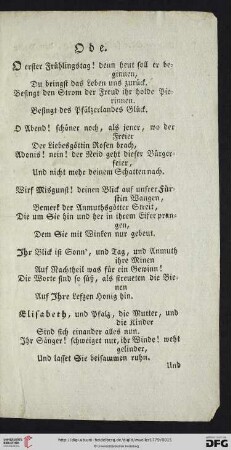 Ode.
O erster Frühlingstag! denn heut soll er be-
ginnen,
Du bringst das Leben uns zurück,
Besingt den Strom der Freud ihr holde Pie-
rinnen.
Besingt des Pfälzerlandes Glück.
O Abend! schöner noch, als jener, wo der
Freier
Der Liebesgöttin Rosen brach,
Adonis! nein! der Neid geht dieser Bürger-
feier,
Und nicht mehr deinem Schatten nach.
Wirf Misgunst! deinen Blick auf unsrer Für-
stin Wangen,
Bemerk der Anmuthsgötter Streit,
Die um Sie hin und her in ihrem Eifer pran-
gen,
Dem Sie mit Winken nur gebeut.
Ihr Blick ist Sonn', und Tag, und Anmuth
ihre Minen
Auf Nachtheil was für ein Gewinn!
Die Worte sind so süß, als streueten die Bie-
nen
Auf Ihre Lefzen Honig hin.
Elisabeth, und Pfalz, die Mutter, und
die Kinder
Sind sich einander alles nun.
Ihr Sänger! schweiget nur, ihr Winde! weht
gelinder,
Und lasset Sie beisammen ruhn.
Und
UNIVERSITÄTS-
BIBLIOTHEK
HEIDELBERG
DFG